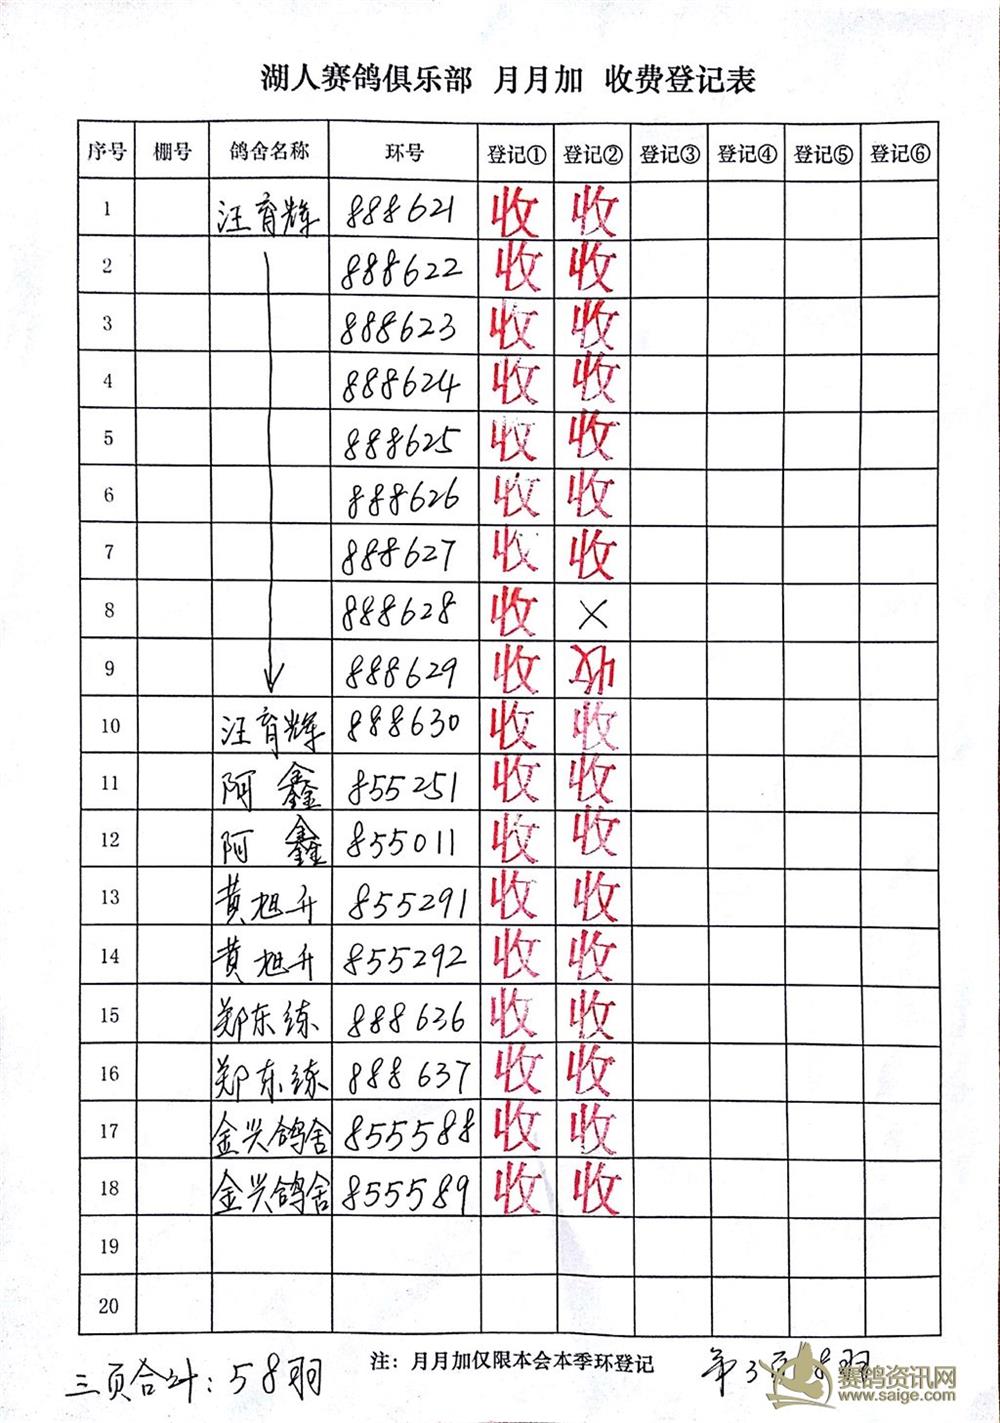 湖人赛鸽俱乐部 月月加 收费登记表
序号 棚号 鸽舍名称 环号 登记① 登记② 登记③ 登记④ 登记⑤ 登记⑥
1 汪育辉 888621 收 收
2 888622 收 收
3 888623 收 收
4 888624 收 收
5 888625 收 收
6 888626 收 收
7 888627 收 收
8 888628 收 ×
9 888629 收 收
10 汪育辉 888630 收 收
11 阿鑫 855251 收 收
12 阿鑫 855011 收 收
13 黄旭升 855291 收 收
14 黄旭升 855292 收 收
15 郑东练 888636 收 收
16 郑东练 888637 收 收
17 金兴鸽舍 855588 收 收
18 金兴鸽舍 855589 收 收
19
20
注：月月加仅限本会本季环登记
三页合计：58羽
第3页 8羽
赛鸽资讯网
www.saige.com